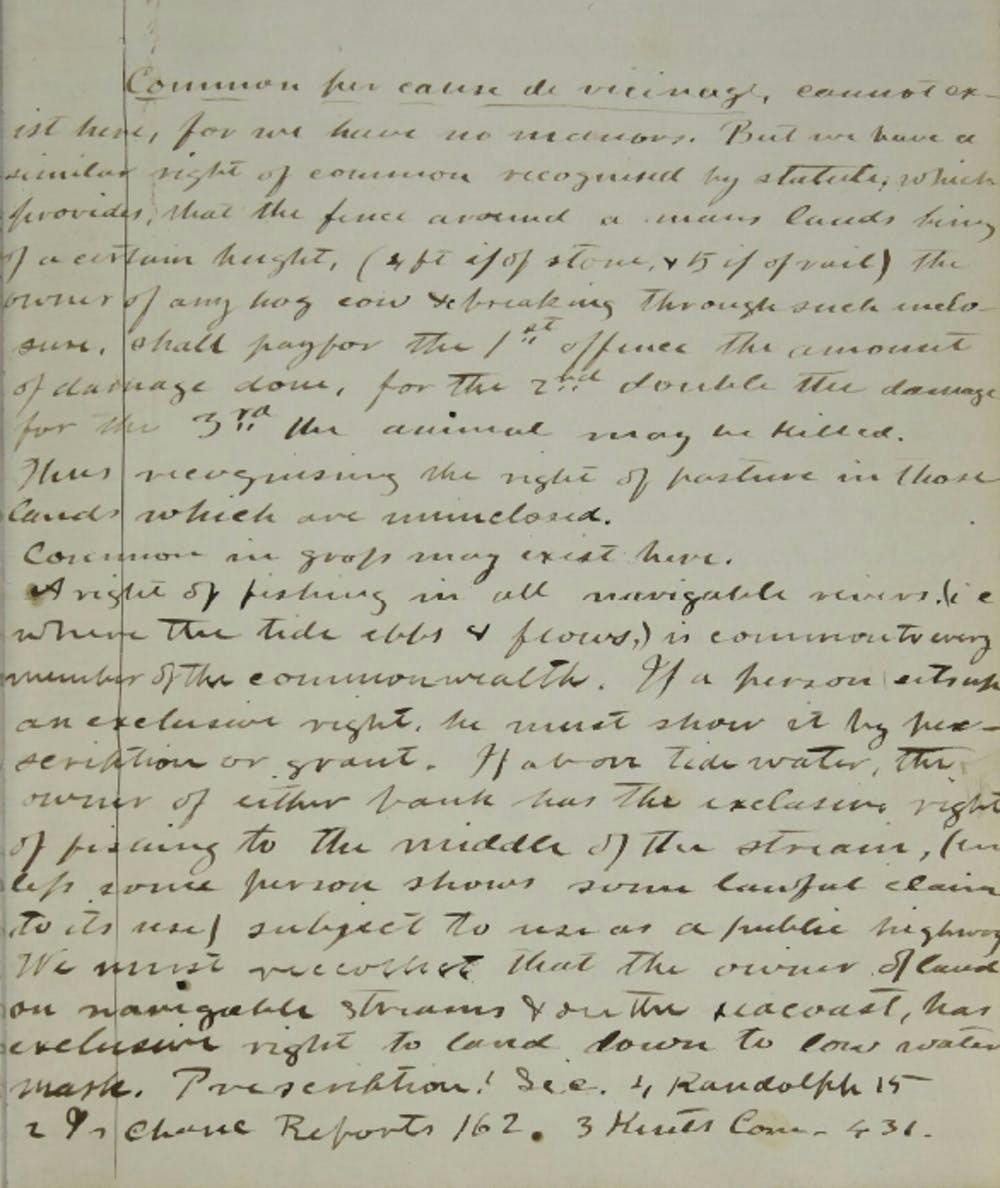 Common per cause de vicinage, cannot ex-
ist here, for we have no manors. But we have a
similar right of common recognised by statute, which
provides, that the fence around a mans lands being
of a certain height, (4 ft if of stone, & 5 if of rail) the
owner of any hog cow &c breaking through such inclo-
sure, shall pay for the 1st offence the amount
of damage done, for the 2nd double the damage
for the 3rd the animal may be killed.
Thus recognising the right of pasture in those
lands which are uninclosed.
Common in gross may exist here.
A right of fishing in all navigable rivers (i e
where the tide ebbs & flows,) is common to every
member of the commonwealth. If a person sets up
an exclusive right, he must show it by pre-
scription or grant. If above tide water, the
owner of either bank has the exclusive right
of fishing to the middle of the stream, (un
less some person shows some lawful claim
to its use) subject to use as a public highway
We must reccollect that the owner of land
on navigable streams & on the seacoast, has
exclusive right to land down to low water
mark. Prescription! See. 4 Randolph 15
2 Chanc Reports 162. 3 Kents Com. 431.